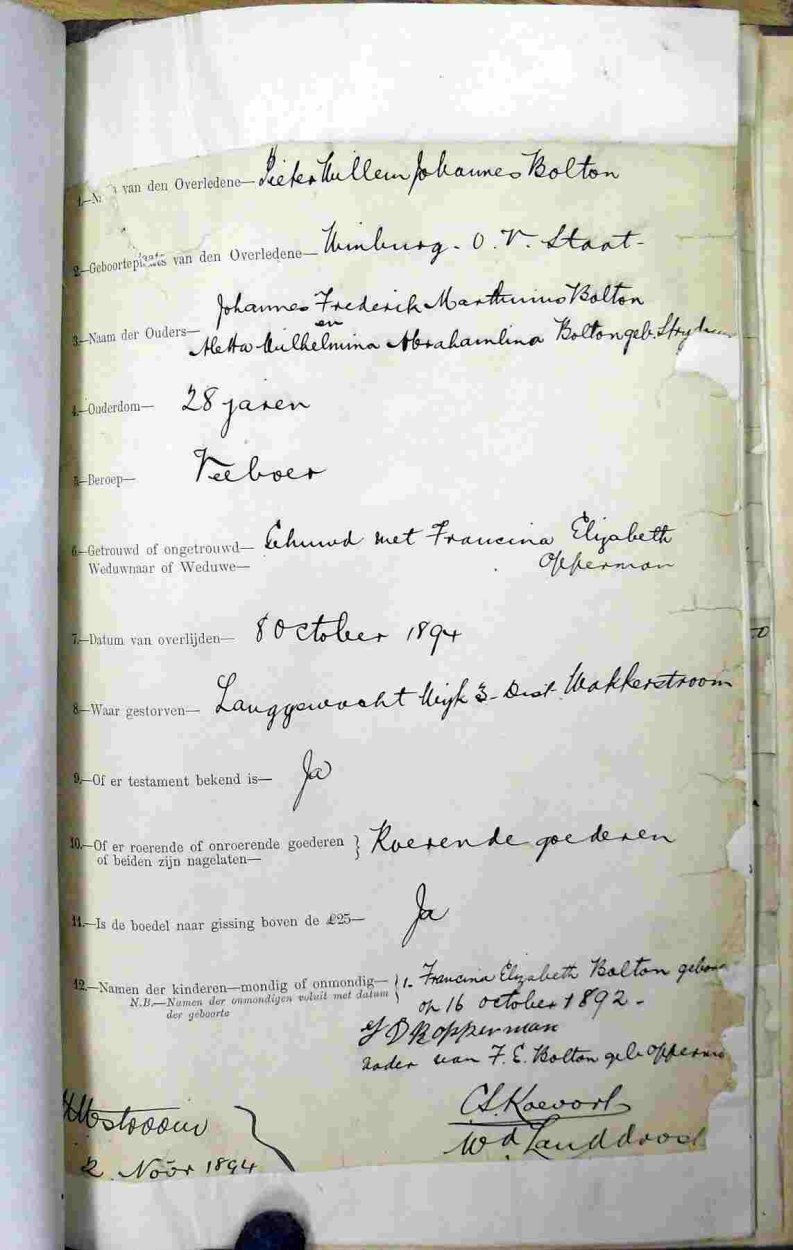 1.—N van den Overledene— Pieter Willem Johannes Bolton
2.—Geboorteplaats van den Overledene— Winburg. O. V. Staat-
Johannes Frederik Marthinus Bolton
en
3.—Naam der Ouders— Aletta Wilhelmina Abrahamlina Bolton geb. Strydom
4.—Ouderdom— 28 jaren
5.—Beroep— Veeboer
6.—Getrouwd of ongetrouwd— Gehuwd met Francina Elizabeth
Weduwnaar of Weduwe— Opperman
7.—Datum van overlijden— 8 October 1894
8.—Waar gestorven— Langgewacht Wijk 3- Dist. Wakkerstroom
9.—Of er testament bekend is— Ja
10.—Of er roerende of onroerende goederen } Roerende goederen
of beiden zijn nagelaten—
11.—Is de boedel naar gissing boven de £25— Ja
12.—Namen der kinderen—mondig of onmondig— { 1. Francina Elizabeth Bolton geboren
N.B.—Namen der onmondigen voluit met datum } op 16 October 1892 -
der geboorte
Opperman
vader van F. E. Bolton geb Opperman
C.S. Koevort
Wd. Landdrost
Wstroom
2 Novr 1894